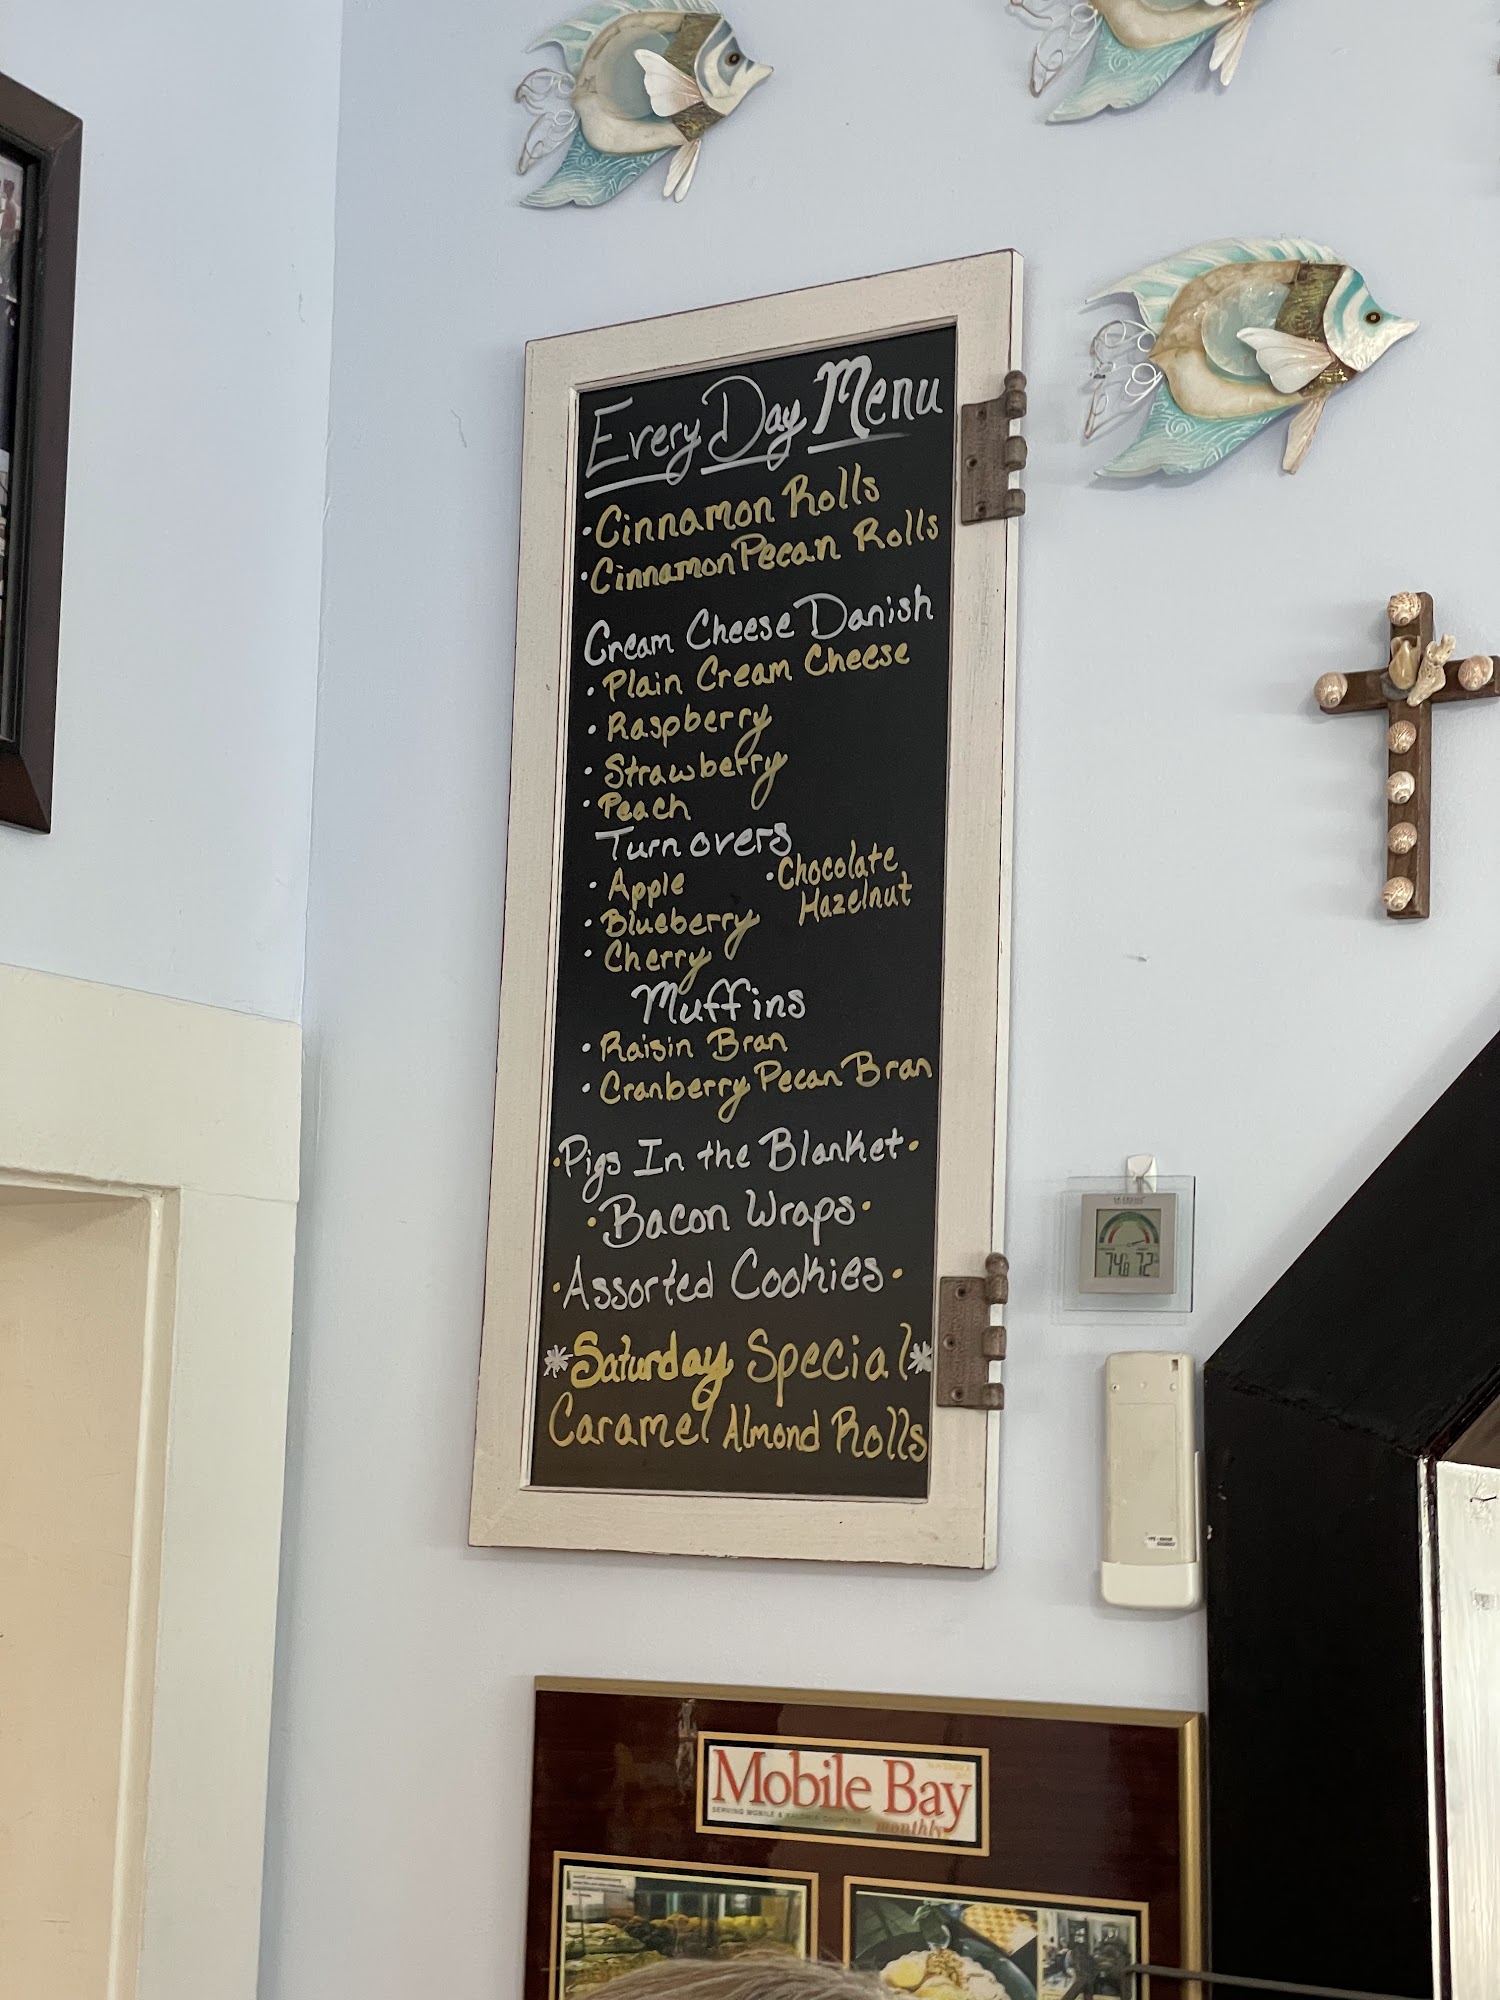 Every Day Menu
• Cinnamon Rolls
• Cinnamon Pecan Rolls
Cream Cheese Danish
• Plain Cream Cheese
• Raspberry
• Strawberry
• Peach
Turnovers
• Apple
• Blueberry
• Cherry
• Chocolate
Hazelnut
Muffins
• Raisin Bran
• Cranberry Pecan Bran
• Pigs In the Blanket •
• Bacon Wraps •
• Assorted Cookies •
*Saturday Special*
Caramel Almond Rolls
74.8 72
Mobile Bay
SERVING MOBILE & BALDWIN COUNTIES
monthly